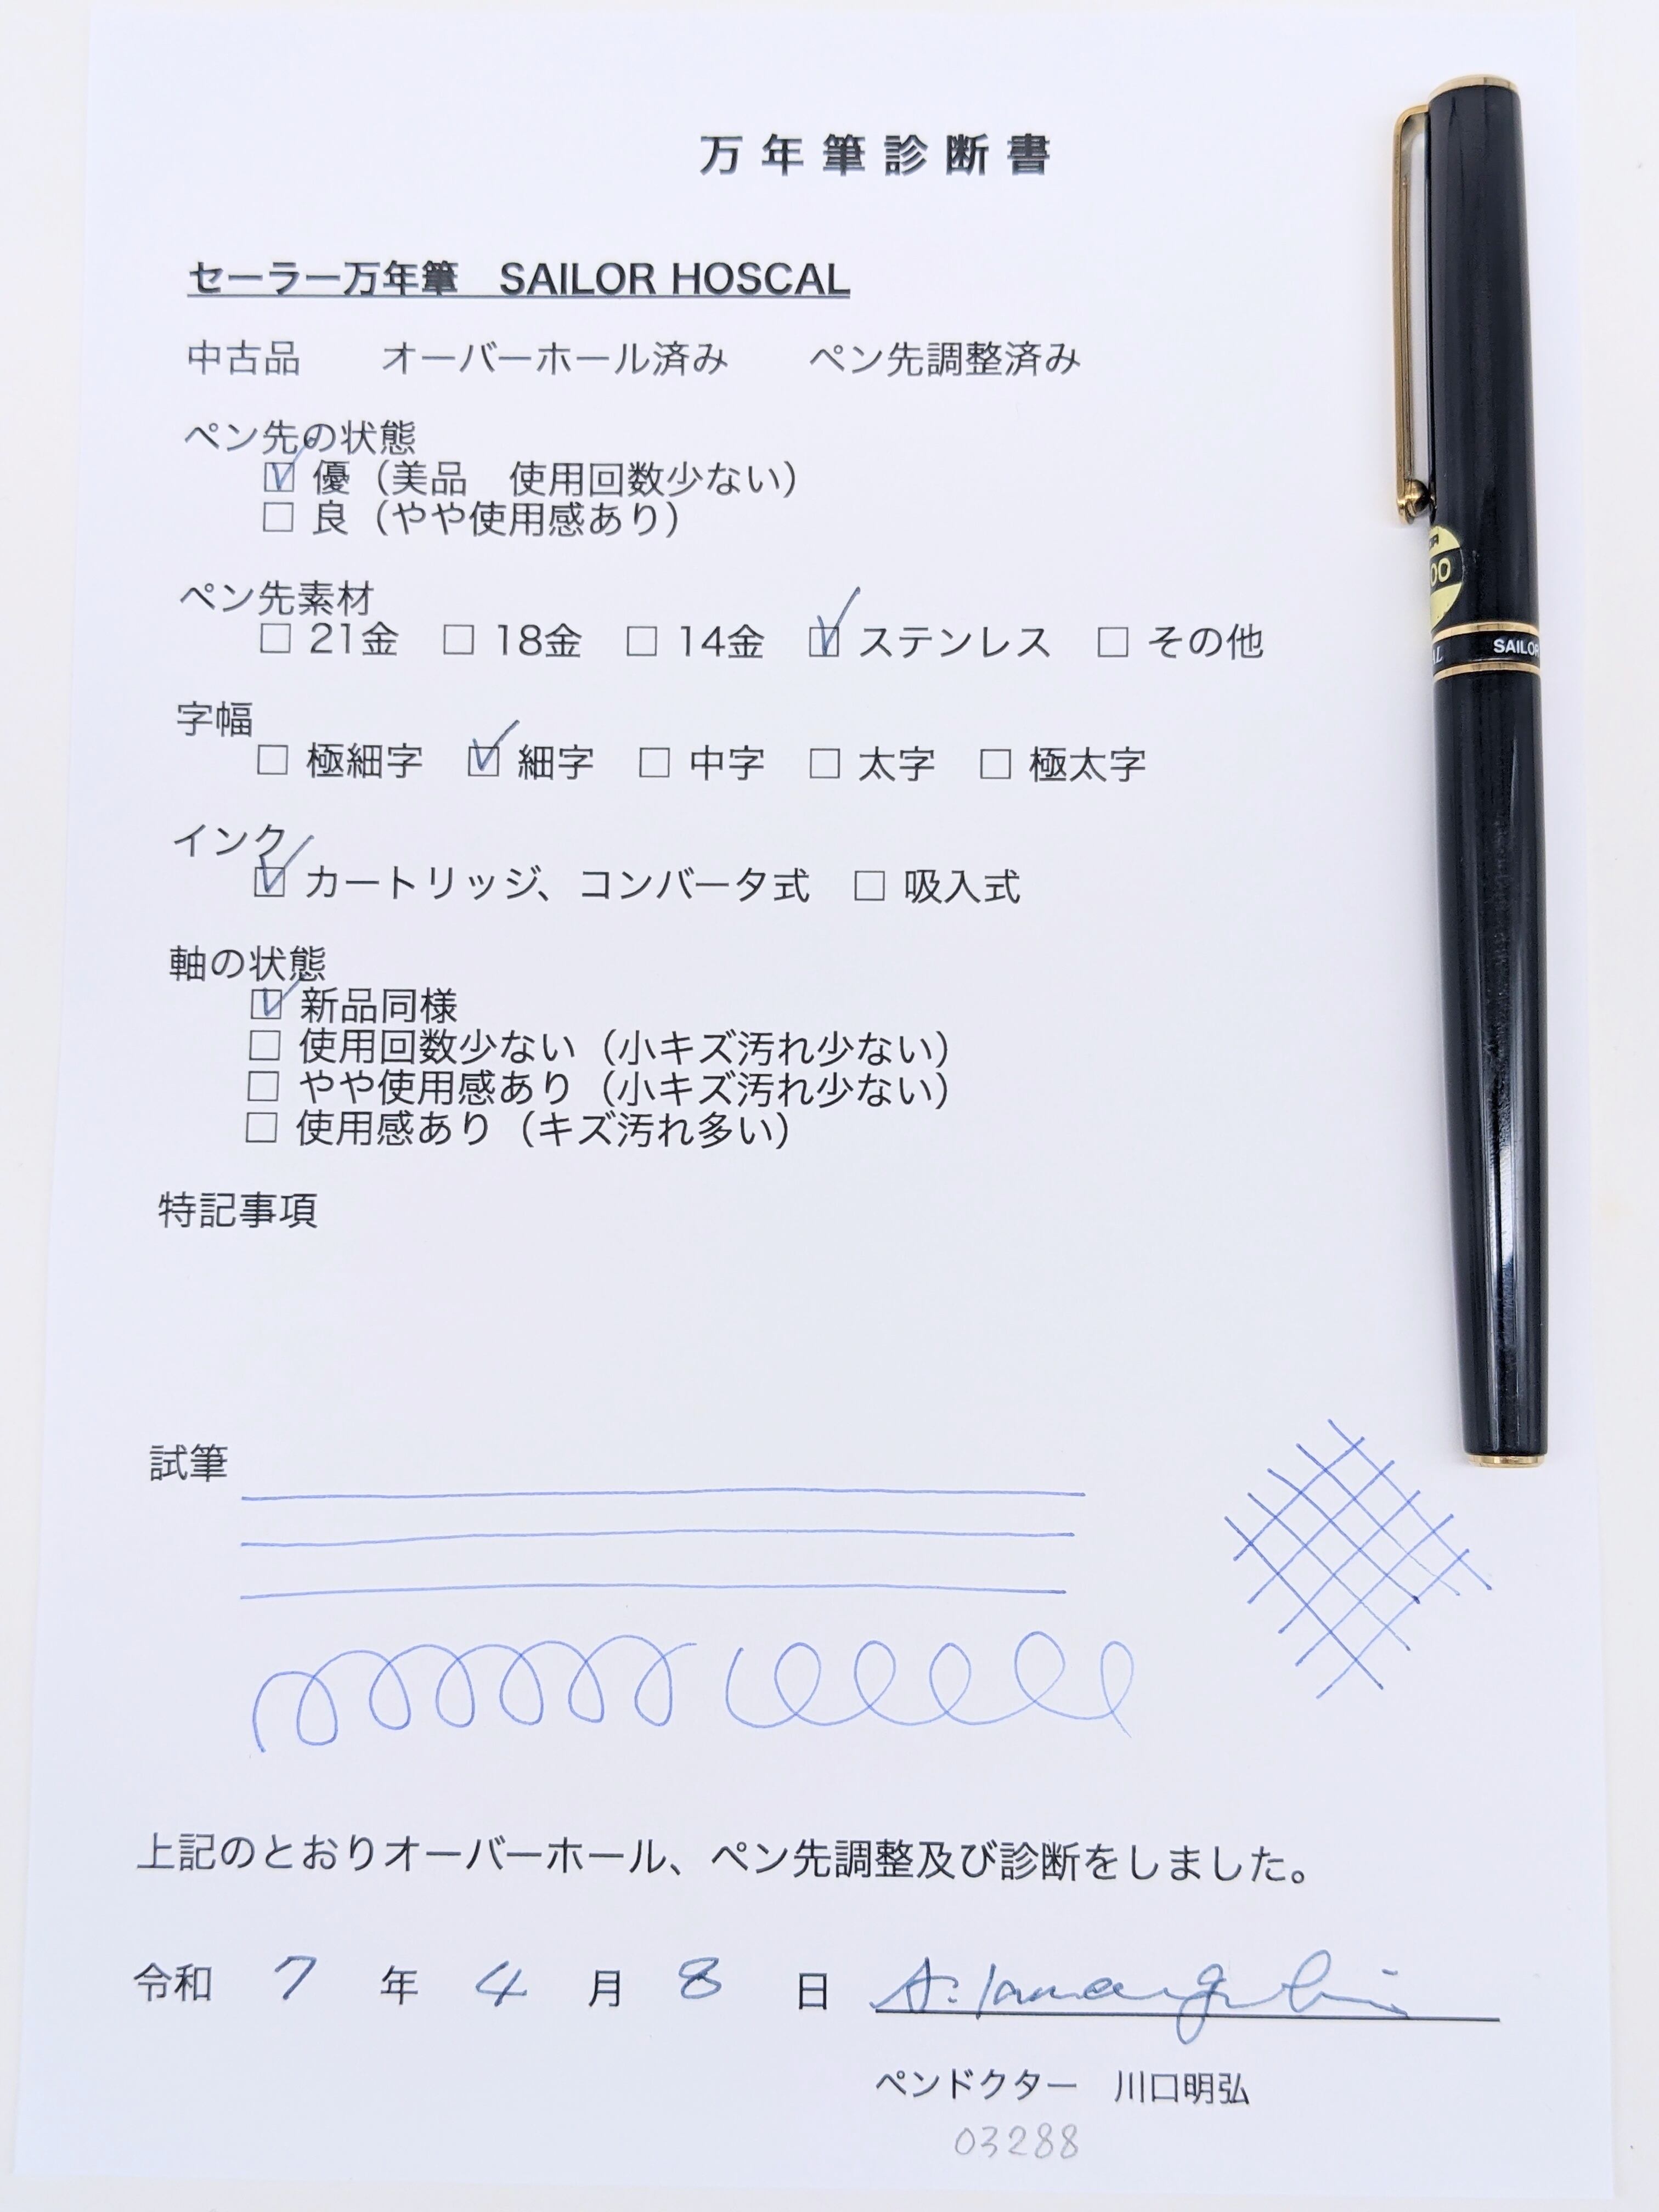 万年筆診断書
セーラー万年筆　SAILOR HOSCAL
中古品　オーバーホール済み　ペン先調整済み
ペン先の状態
☑ 優（美品　使用回数少ない）
☐ 良（やや使用感あり）
ペン先素材
☐ 21金 ☐ 18金 ☐ 14金 ☑ ステンレス ☐ その他
字幅
☐ 極細字 ☑ 細字 ☐ 中字 ☐ 太字 ☐ 極太字
インク
☑ カートリッジ、コンバータ式 ☐ 吸入式
軸の状態
☑ 新品同様
☐ 使用回数少ない（小キズ汚れ少ない）
☐ やや使用感あり（小キズ汚れ少ない）
☐ 使用感あり（キズ汚れ多い）
特記事項
試筆
上記のとおりオーバーホール、ペン先調整及び診断をしました。
令和 7 年 4 月 8 日
ペンドクター　川口明弘
03288
SAILOR